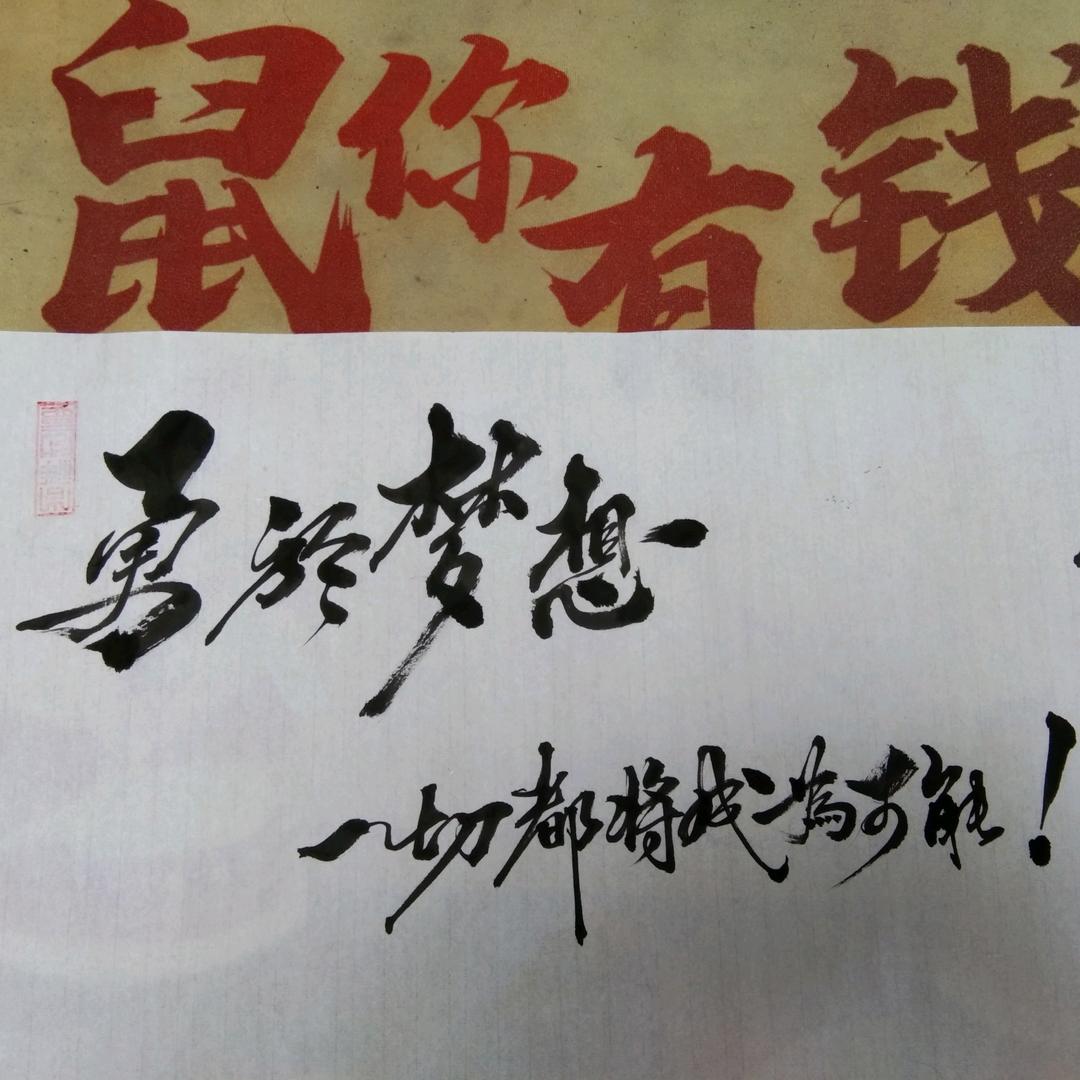 鼠你有钱
勇於梦想
一切都将成為可能!